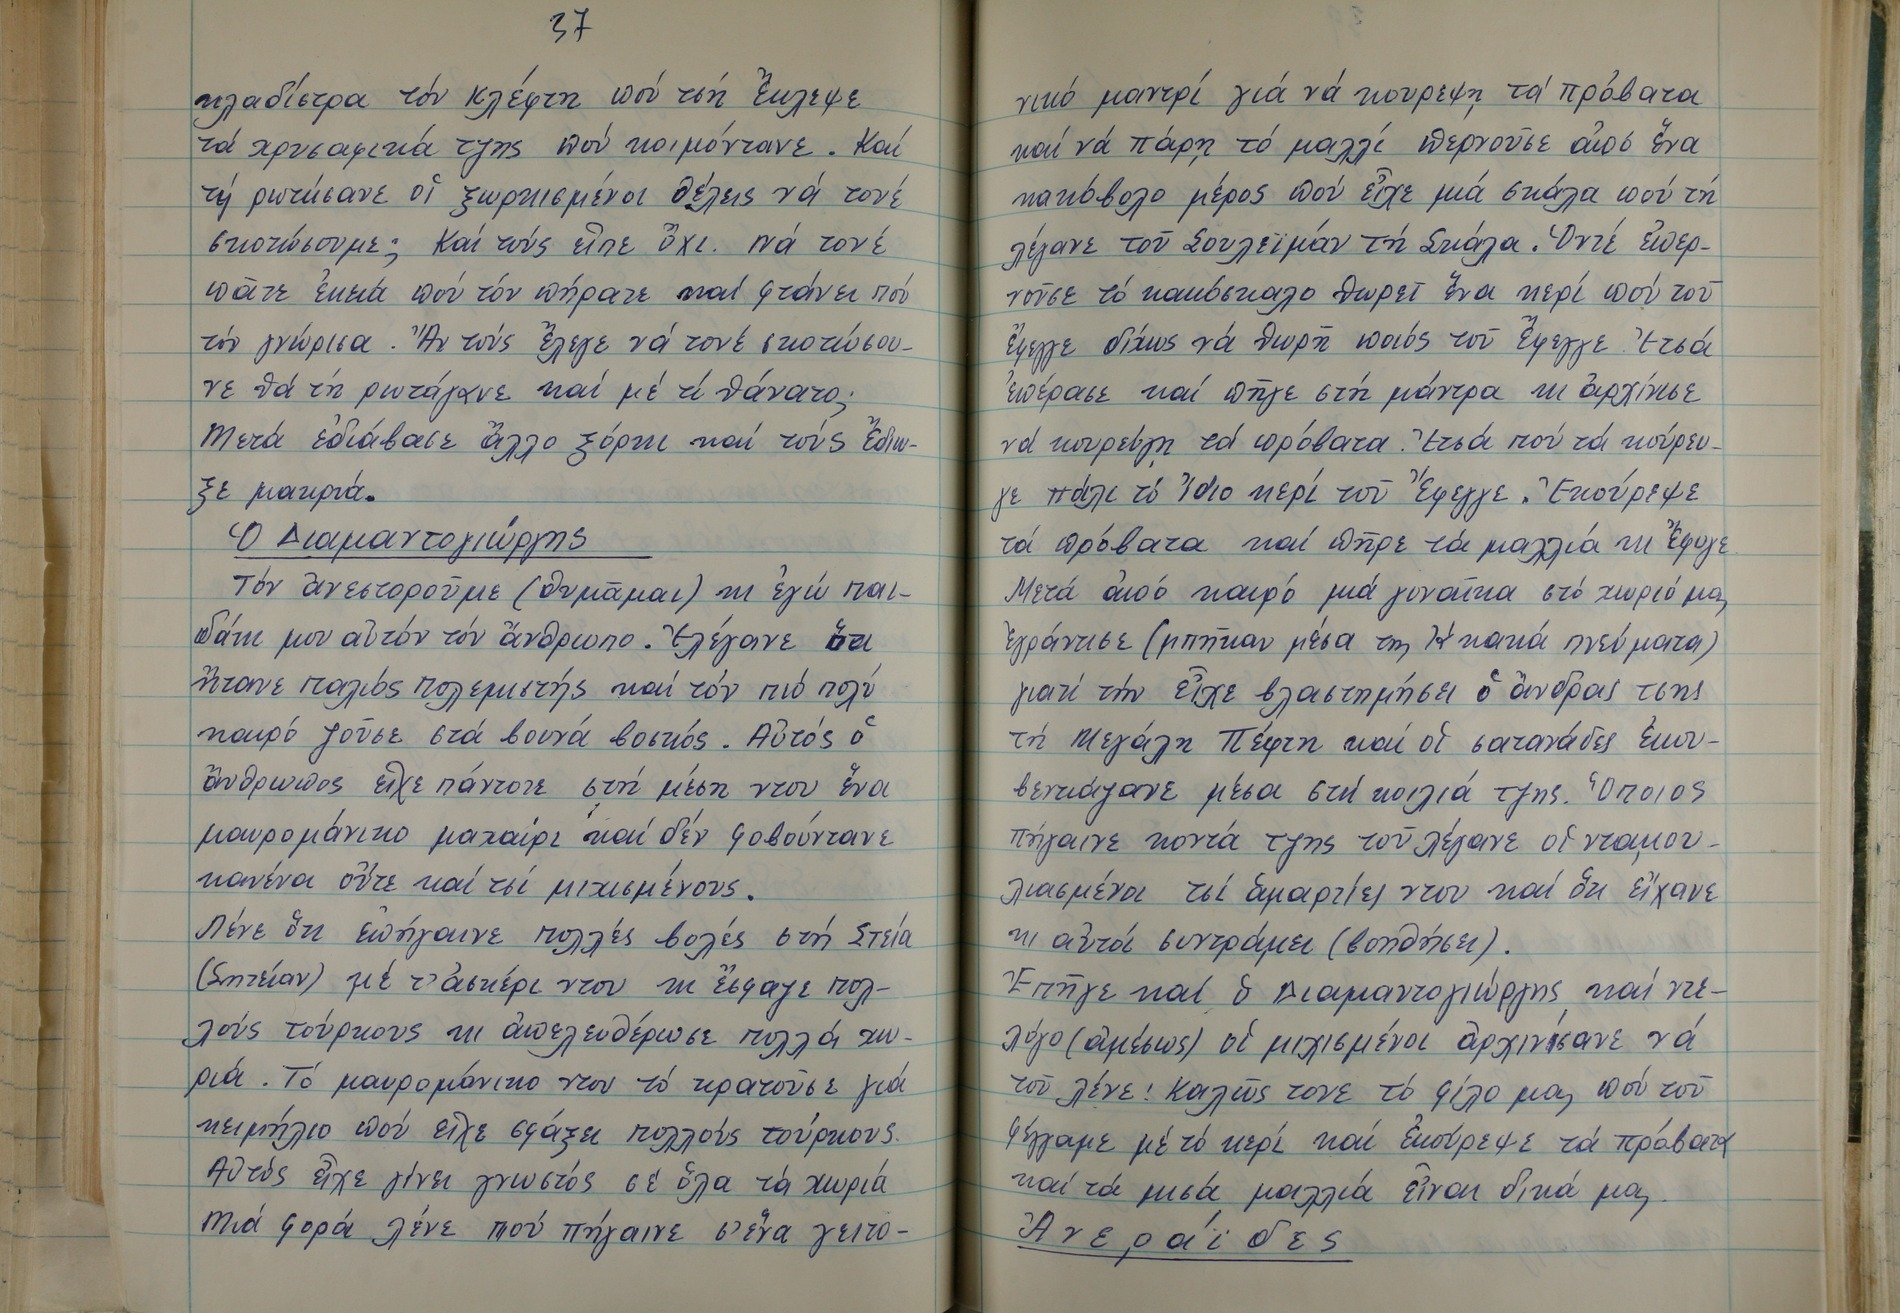 37
κλαδίστρα τόν κλέφτη πού τσή ἔκλεψε
τά χρυσαφικά τζης πού κοιμόντανε. Καί
τή ρωτήσανε οἱ ξωρκισμένοι θέλεις νά τονέ
σκοτώσουμε; Καί τούς εἶπε ὄχι. Νά τονέ
πᾶτε ἐκειά πού τόν πήρατε καί φτάνει πού
τόν γνώρισα. Ἄν τούς ἔλεγε νά τονέ σκοτώσου-
νε θά τή ρωτάγανε καί μέ τί θάνατο;
Μετά ἐδιάβασε ἄλλο ξόρκι καί τούς ἔδιω-
ξε μακριά.
Ὁ Διαμαντογιώργης
Τόν ἀνεστοροῦμε (θυμᾶμαι) κι ἐγώ παι-
δάκι μου αὐτόν τόν ἄνθρωπο. Ἐλέγανε ὅτι
ἤτανε παλιός πολεμιστής καί τόν πιό πολύ
καιρό ζοῦσε στά βουνά βοσκός. Αὐτός ὁ
ἄνθρωπος εἶχε πάντοτε στή μέση ντου ἕνα
μαυρομάνικο μαχαίρι καί δέν φοβούντανε
κανένα οὔτε καί τσί μιχισμένους.
Λένε ὅτι ἐπήγαινε πολλές βολές στή Στεία
(Σητείαν) μέ τ' ἀσκέρι ντου κι ἔσφαγε πολ-
λούς τούρκους κι ἀπελευθέρωσε πολλά χω-
ριά. Τό μαυρομάνικο ντου τό κρατοῦσε γιά
κειμήλιο πού εἶχε σφάξει πολλούς τούρκους.
Αὐτός εἶχε γίνει γνωστός σέ ὅλα τά χωριά
Μιά φορά λένε πού πήγαινε σ' ἕνα γειτο-
νικό μαντρί γιά νά κουρεψη τά πρόβατα
καί νά πάρη τό μαλλί περνοῦσε ἀπό ἕνα
κακόβολο μέρος πού εἶχε μιά σκάλα πού τή
λέγανε τοῦ Σουλεϊμάν τή Σκάλα. Ὀντέ ἐπερ-
νοῦσε τό κακόσκαλο θωρεῖ ἕνα κερί πού τοῦ
ἔφεγγε δίχως νά θωρῆ ποιός τοῦ ἔφεγγε. Ἐτσά
ἐπέρασε καί πῆγε στή μάντρα κι ἀρχίνισε
νά κουρεύγη τά πρόβατα. Ἐτσά πού τά κούρευ-
γε πάλι τό ἴδιο κερί τοῦ ἔφεγγε. Ἐκούρεψε
τά πρόβατα καί πῆρε τά μαλλιά κι ἔφυγε
Μετά ἀπό καιρό μιά γυναῖκα στό χωριό μας
ἐγράντισε (μπῆκαν μέσα της κακά πνεύματα)
γιατί τήν εἶχε βλαστημήσει ὁ ἄνδρας τσης
τή Μεγάλη Πέφτη καί οἱ σατανάδες ἐκου-
βεντιάζανε μέσα στή κοιλιά τζης. Ὅποιος
πήγαινε κοντά τζης τοῦ λέγανε οἱ νταμου-
λιασμένοι τσί ἁμαρτίες ντου καί ὅτι εἴχανε
κι αὐτοί συντράμει (βοηθήσει).
Ἐπῆγε καί ὁ Διαμαντογιώργης καί ντε-
λόγο (ἀμέσως) οἱ μιχισμένοι ἀρχινίσανε νά
τοῦ λένε: Καλῶς τονε τό φίλο μας πού τοῦ
φέγγαμε μέ τό κερί καί ἐκούρεψε τά πρόβατα
καί τά μισά μαλλιά εἶναι δικά μας.
Ἀνεράϊδες